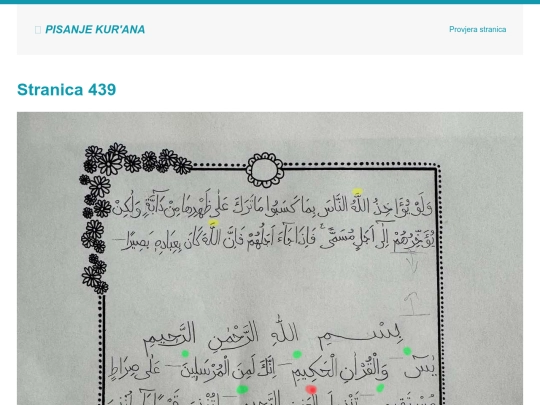 PISANJE KUR'ANA
Provjera stranica
Stranica 439
وَلَوْ يُؤَاخِذُ اللَّهُ النَّاسَ بِمَا كَسَبُوا مَا تَرَكَ عَلَىٰ ظَهْرِهَا مِنْ دَابَّةٍ وَلَٰكِنْ
يُؤَخِّرُهُمْ إِلَىٰ أَجَلٍ مُسَمًّى فَإِذَا جَاءَ أَجَلُهُمْ فَإِنَّ اللَّهَ كَانَ بِعِبَادِهِ بَصِيرًا
بِسْمِ اللَّهِ الرَّحْمَٰنِ الرَّحِيمِ
يس وَالْقُرْآنِ الْحَكِيمِ إِنَّكَ لَمِنَ الْمُرْسَلِينَ عَلَىٰ صِرَاطٍ